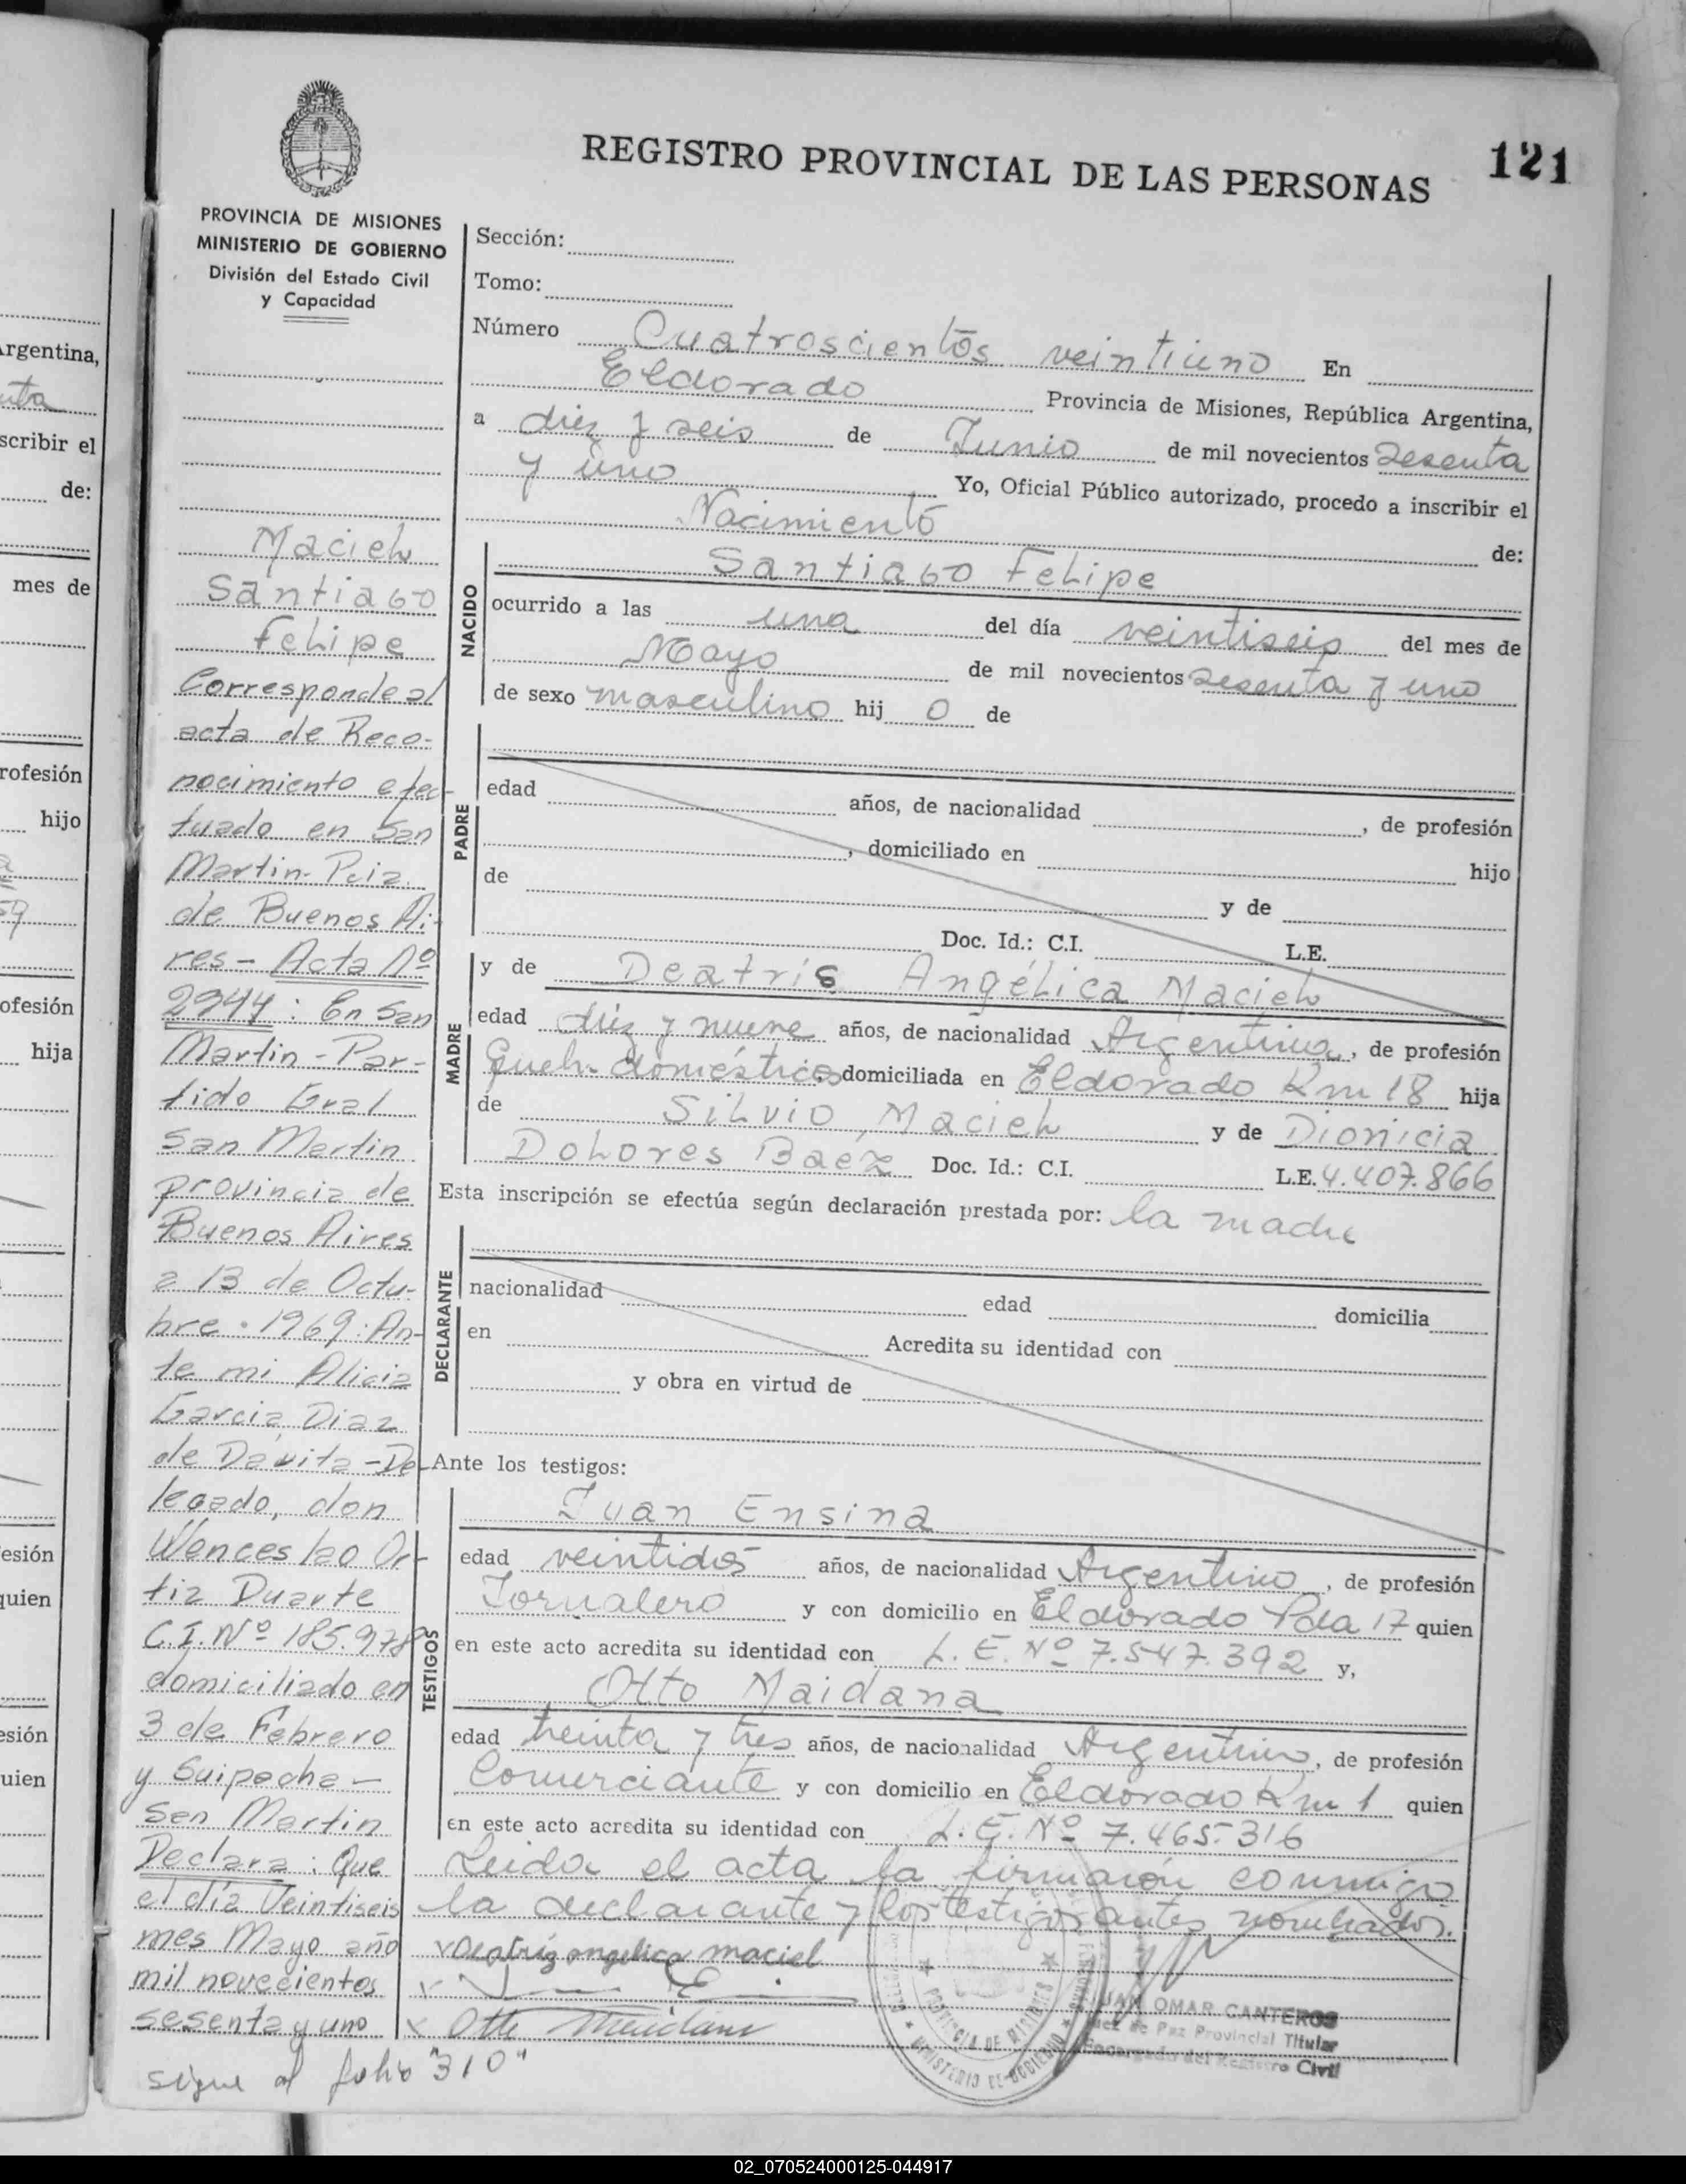 REGISTRO PROVINCIAL DE LAS PERSONAS
121
PROVINCIA DE MISIONES
MINISTERIO DE GOBIERNO
División del Estado Civil
y Capacidad
Maciel
Santiago
Felipe
Corresponde al
acta de Reco-
nocimiento efec-
tuado en San
Martin-Pcia.
de Buenos Ai-
res - Acta Nº
2944: En San
Martin - Par-
tido Gral
San Martin
provincia de
Buenos Aires
a 13 de Octu-
bre. 1969: An-
te mi Alicia
Garcia Diaz
de Davita - De-
legado, don
Wenceslao Or-
tiz Duarte
C.I. Nº 185.978
domiciliado en
3 de Febrero
y Suipacha -
San Martin
Declara: Que
el día Veintiseis
mes Mayo año
mil novecientos
sesenta y uno
sigue al folio "310"
Sección:
Tomo:
Número Cuatroscientos veintiuno En
Eldorado Provincia de Misiones, República Argentina,
a diez y seis de Junio de mil novecientos sesenta
y uno Yo, Oficial Público autorizado, procedo a inscribir el
Nacimiento de:
NACIDO
Santiago Felipe
ocurrido a las una del día veintiseis del mes de
Mayo de mil novecientos sesenta y uno
de sexo masculino hijo de
PADRE
edad años, de nacionalidad , de profesión
, domiciliado en hijo
de y de
Doc. Id.: C.I. L.E.
MADRE
y de Beatris Angélica Maciel
edad diez y nueve años, de nacionalidad Argentina, de profesión
Queh. domésticos domiciliada en Eldorado Km 18 hija
de Silvio Maciel y de Dionicia
Dolores Baez Doc. Id.: C.I. L.E. 4.407.866
Esta inscripción se efectúa según declaración prestada por: la madre
DECLARANTE
nacionalidad edad domicilia
en Acredita su identidad con
y obra en virtud de
Ante los testigos:
TESTIGOS
Juan Ensina
edad veintidos años, de nacionalidad Argentino, de profesión
Jornalero y con domicilio en Eldorado Pda 17 quien
en este acto acredita su identidad con L.E. Nº 7.547.392 y,
Otto Maidana
edad treinta y tres años, de nacionalidad Argentino, de profesión
Comerciante y con domicilio en Eldorado Km 1 quien
en este acto acredita su identidad con L.E. Nº 7.465.316
Leida el acta la firmaron conmigo
la declarante y los testigos antes nombrados.
Beatriz angelica maciel
Otto Maidana
PROVINCIA DE MISIONES
MINISTERIO DE GOBIERNO
JUAN OMAR CANTEROS
Juez de Paz Provincial Titular
Encargado del Registro Civil
Argentina,
scribir el
de:
mes de
rofesión
hijo
59
ofesión
hija
esión
quien
esión
uien
02_070524000125-044917